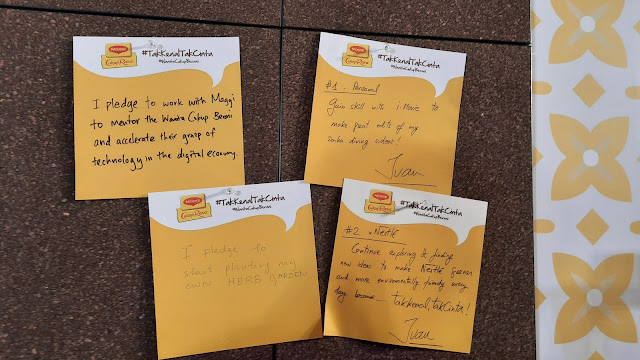 MAGGI
CukupRasa
#TakKenalTakCinta
#WanitaCukupBerani
I pledge to work with Maggi
to mentor the Wanita Cukup Berani
and accelerate their grasp of
technology in the digital economy
MAGGI
CukupRasa
#TakKenalTakCinta
#WanitaCukupBerani
#1. Personal
Gain skill with i-Movie to
make great edits of my
scuba diving videos!
Juan
MAGGI
CukupRasa
#TakKenalTakCinta
#WanitaCukupBerani
I pledge to
start planting my
own HERB GARDEN
MAGGI
CukupRasa
#TakKenalTakCinta
#WanitaCukupBerani
#2. Nestlé
Continue exploring & finding
new ideas to make Nestlé greener
and more environmentally friendly every
day because.... takkenal, takCinta!
Juan